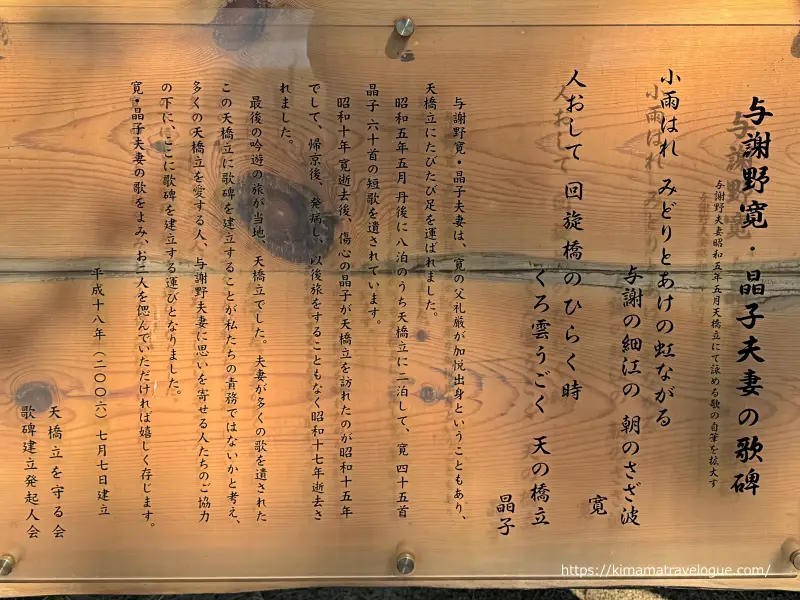 与謝野寛・晶子夫妻の歌碑
与謝野夫妻昭和五年五月天橋立にて詠める歌の自筆を拡大す
小雨はれ みどりとあけの虹ながる
与謝の細江の 朝のさざ波
寛
人おして 回旋橋のひらく時
くろ雲うごく 天の橋立
晶子
与謝野寛・晶子夫妻は、寛の父礼厳が加悦出身ということもあり、
天橋立にたびたび足を運ばれました。
昭和五年五月 丹後に八泊のうち天橋立に二泊して、寛 四十五首
晶子 六十首の短歌を遺されています。
昭和十年 寛逝去後、傷心の晶子が天橋立を訪れたのが昭和十五年
でして、帰京後、発病し、以後旅をすることもなく昭和十七年逝去さ
れました。
最後の吟遊の旅が当地、天橋立でした。夫妻が多くの歌を遺された
この天橋立に歌碑を建立することが私たちの責務ではないかと考え、
多くの天橋立を愛する人、与謝野夫妻に思いを寄せる人たちのご協力
の下に、ここに歌碑を建立する運びとなりました。
寛・晶子夫妻の歌をよみ、お二人を偲んでいただければ嬉しく存じます。
平成十八年(二〇〇六)七月七日建立
天橋立を守る会
歌碑建立発起人会
https://kimamatravelogue.com/